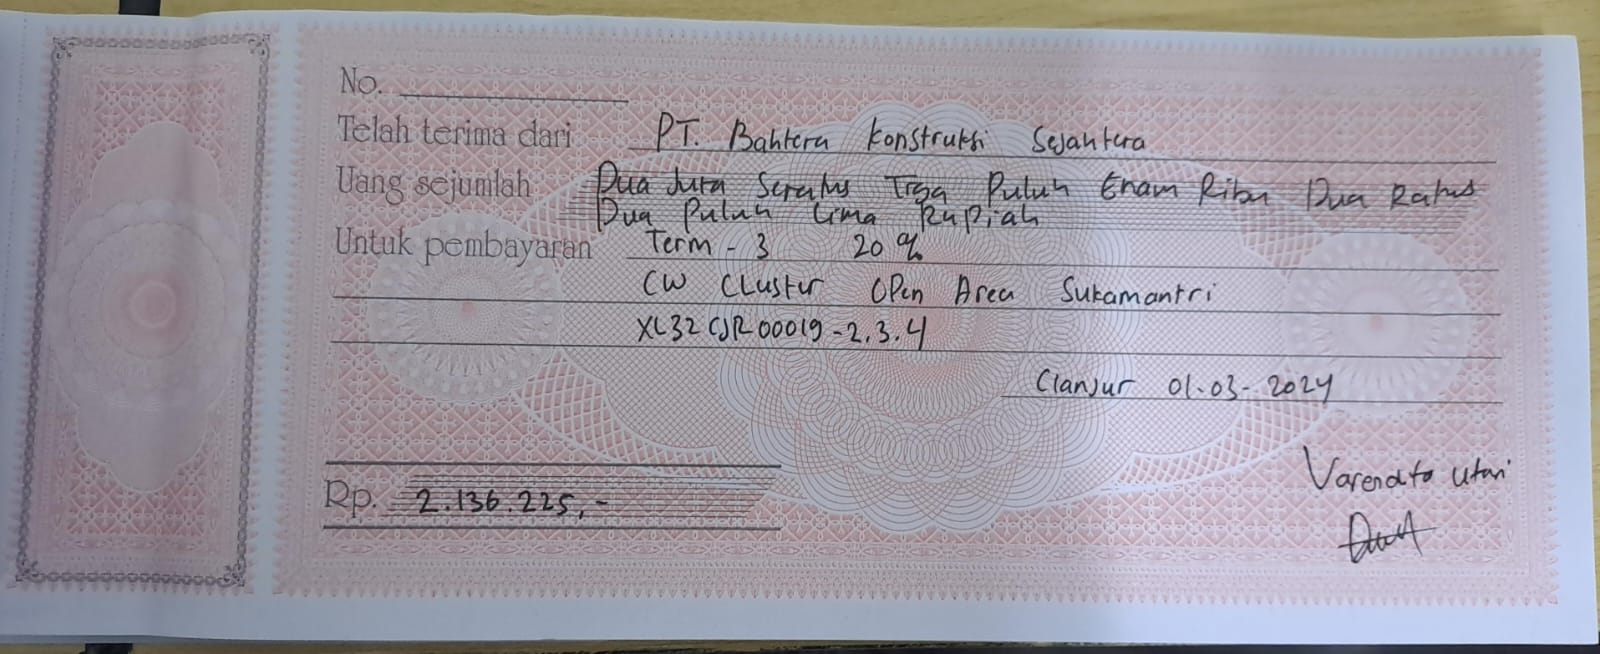 No.
Telah terima dari PT. Bahtera Konstruksi Sejahtera
Uang sejumlah Dua Juta Seratus Tiga Puluh Enam Ribu Dua Ratus
Dua Puluh Lima Rupiah
Untuk pembayaran Term - 3 20 %
CW Cluster Open Area Sukamantri
XL32CJR00019-2.3.4
Cianjur 01-03-2024
Utari
Rp. 2.136.225,-